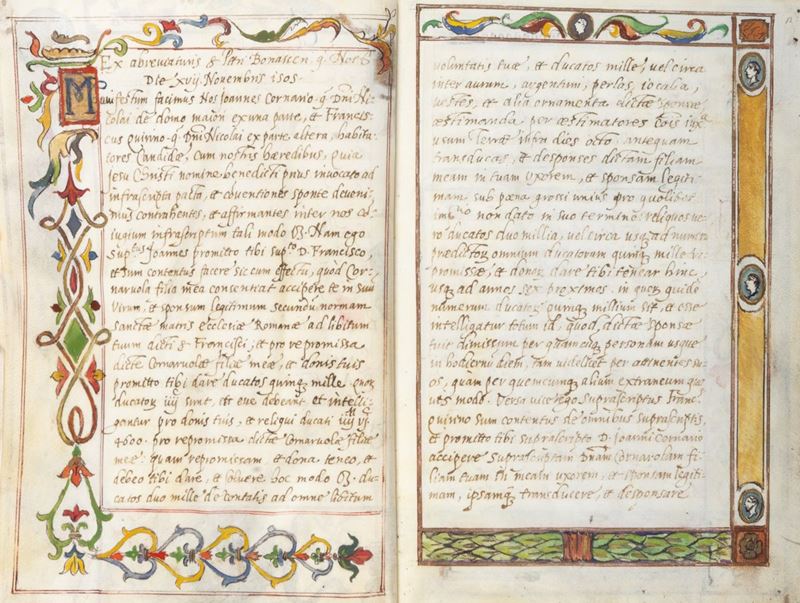 Ex abreviaturis S Pen Bonascen. q. Not
Die xvij Novembris 1505.
Manifestum facimus Nos Joannes Cornario q. Dni Ni-
colai de domo maiori ex una parte, et Francis-
cus quirino q. Dni Nicolai ex parte altera, habita-
tores Candidæ, cum nostris hæredibus, quia
Jesu Christi nomine benedicti prius invocato ad
infrascripta pacta, et conventiones sponte deveni-
mus contrahentes, et affirmantes inter nos co-
iugium infrascriptum tali modo Nam ego
supᵗᵘˢ Joannes promitto tibi supᵗᵒ D. Francisco,
et sum contentus facere sic cum effectu, quod Cor-
naruola filia mea consentiat accipere te in suum
Virum, et sponsum legitimum secundum normam
sanctæ matris ecclesiæ Romanæ ad libitum
tuum dicti S. Francisci, et pro repromissa
dictæ Cornaruolæ filiæ meæ, et donis tuis
promitto tibi dare ducatos quinque mille,
ducatos iiij sint, et esse debeant et intelli-
gantur pro donis tuis, et reliqui ducati
4600. pro repromissa dictæ Cornaruolæ filiæ
meæ: quam repromissam et dona teneor, et
debeo tibi dare, et solvere hoc modo du-
catos duo mille de contatis ad omne libitum
voluntatis tuæ, et ducatos mille, vel circa
inter aurum, argentum, perlas, iocalia,
vestes, et alia ornamenta dictæ sponsæ
æstimanda per æstimatores cois iuxᵃ
usum Terræ infra dies octo, antequam
transducas, et desponses dictam filiam
meam in tuam uxorem, et sponsam legiti-
mam, sub pœna grossi unius pro quolibet
non dato in suo termino: reliquos ve-
ro ducatos duo millia, vel circa usque ad numerum
prædictorum omnium ducatorum quinque mille re-
promissæ, et donorum dare tibi tenear hinc
usque ad annos sex proximos. in quorum quidem
numerum ducatorum quinque millium sit, et esse
intelligatur totum id, quod dictæ sponsæ
fuit dimissum per quamcumque personam usque
in hodiernum diem, tam videlicet per attinentes su-
os, quam per quemcumque alium extraneum quo-
vis modo. Versa vice ego suprascriptus Franc.
quirino sum contentus de omnibus suprascriptis,
et promitto tibi suprascripto D. Joanni Cornario
accipere suprascriptam Dnam Cornarolam fi-
liam tuam in meam uxorem, et sponsam legiti-
mam, ipsamque transducere, et desponsare